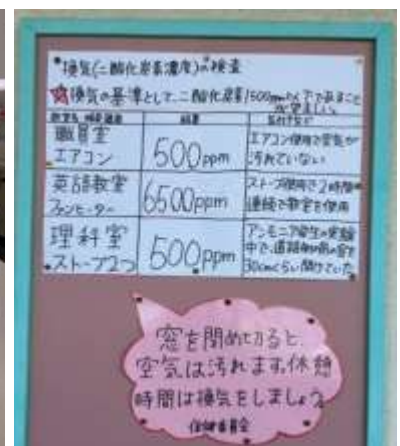 •換気(二酸化炭素濃度)の検査
換気の基準として、二酸化炭素1500ppm以下であること
が望ましい。
教室名 結果
職員室
エアコン
500ppm
エアコン使用で空気が
汚れていない
英語教室
ファンヒーター
6500ppm
ストーブ使用で2時間
連続で教室を使用
理科室
ストーブ2つ
500ppm
アンモニア発生の実験
中で、道路側の窓を
30cmくらい開けていた。
窓を閉め切ると
空気は汚れます。休憩
時間は換気をしましょう。
保健委員会